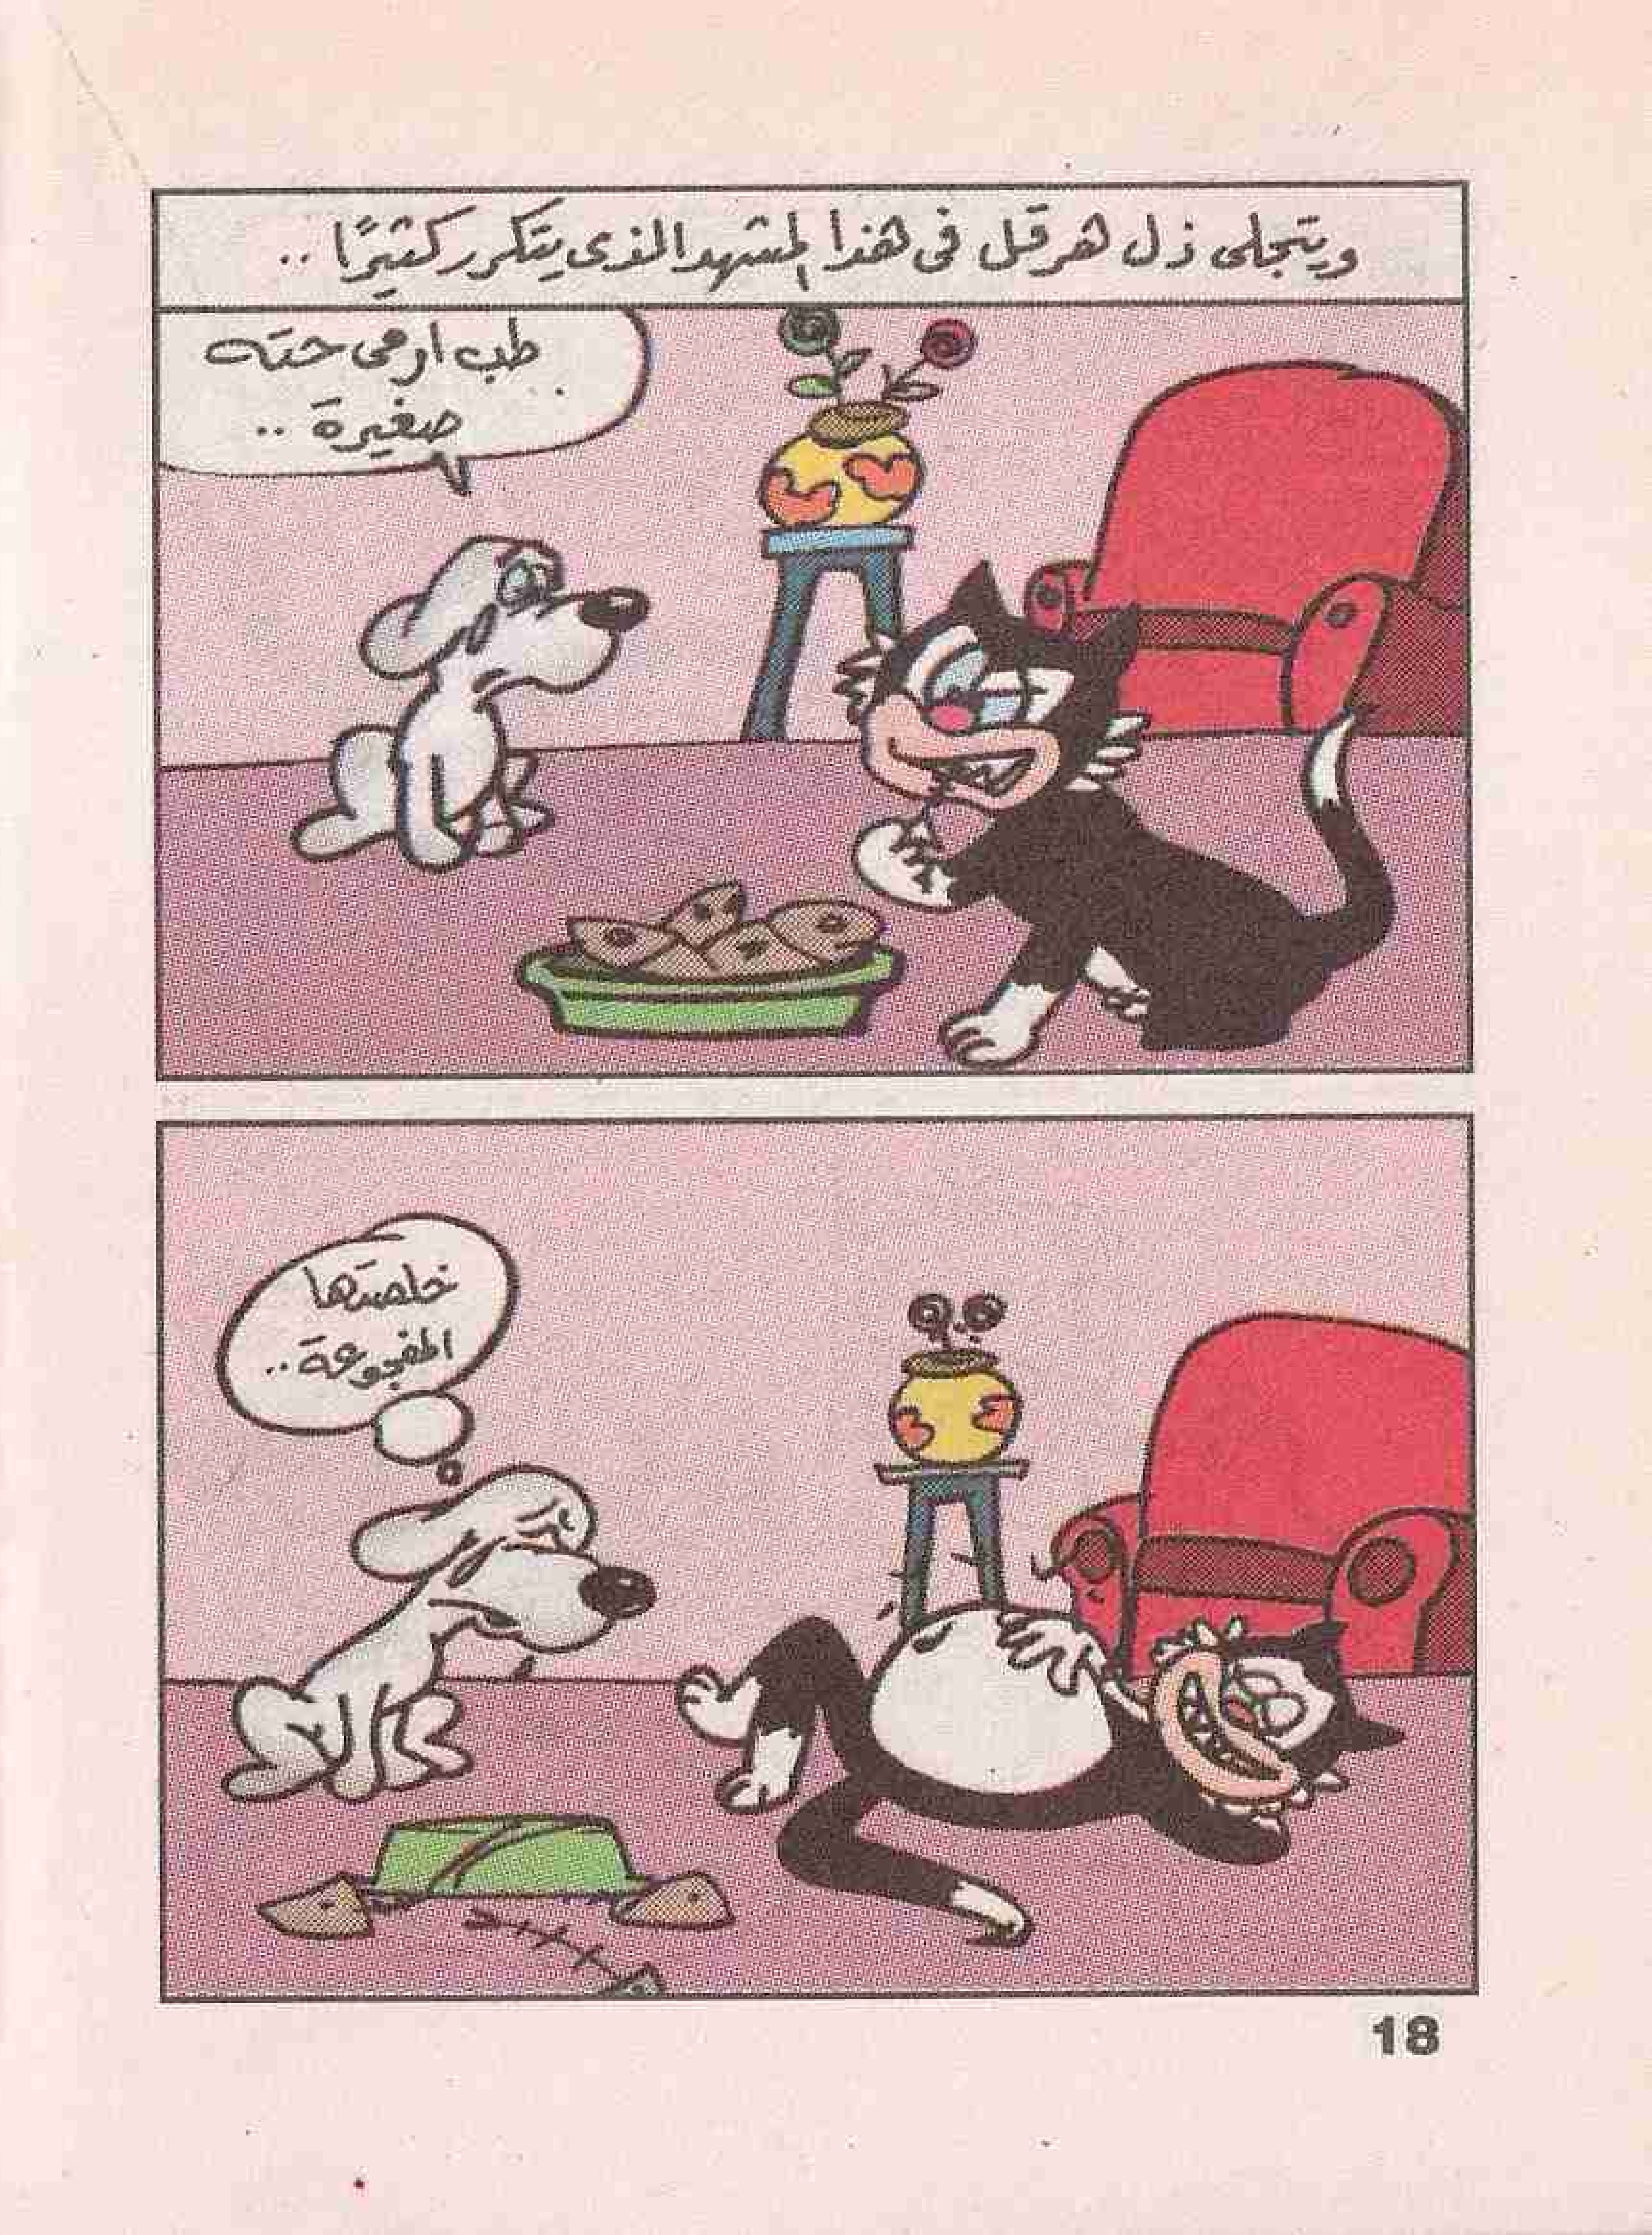 ويتجلى ذل هرقل فى هذا المشهد الذى يتكرر كثيرًا ..
طب ارمى حته
صغيرة ..
خلصتها
المفجوعة ..
18